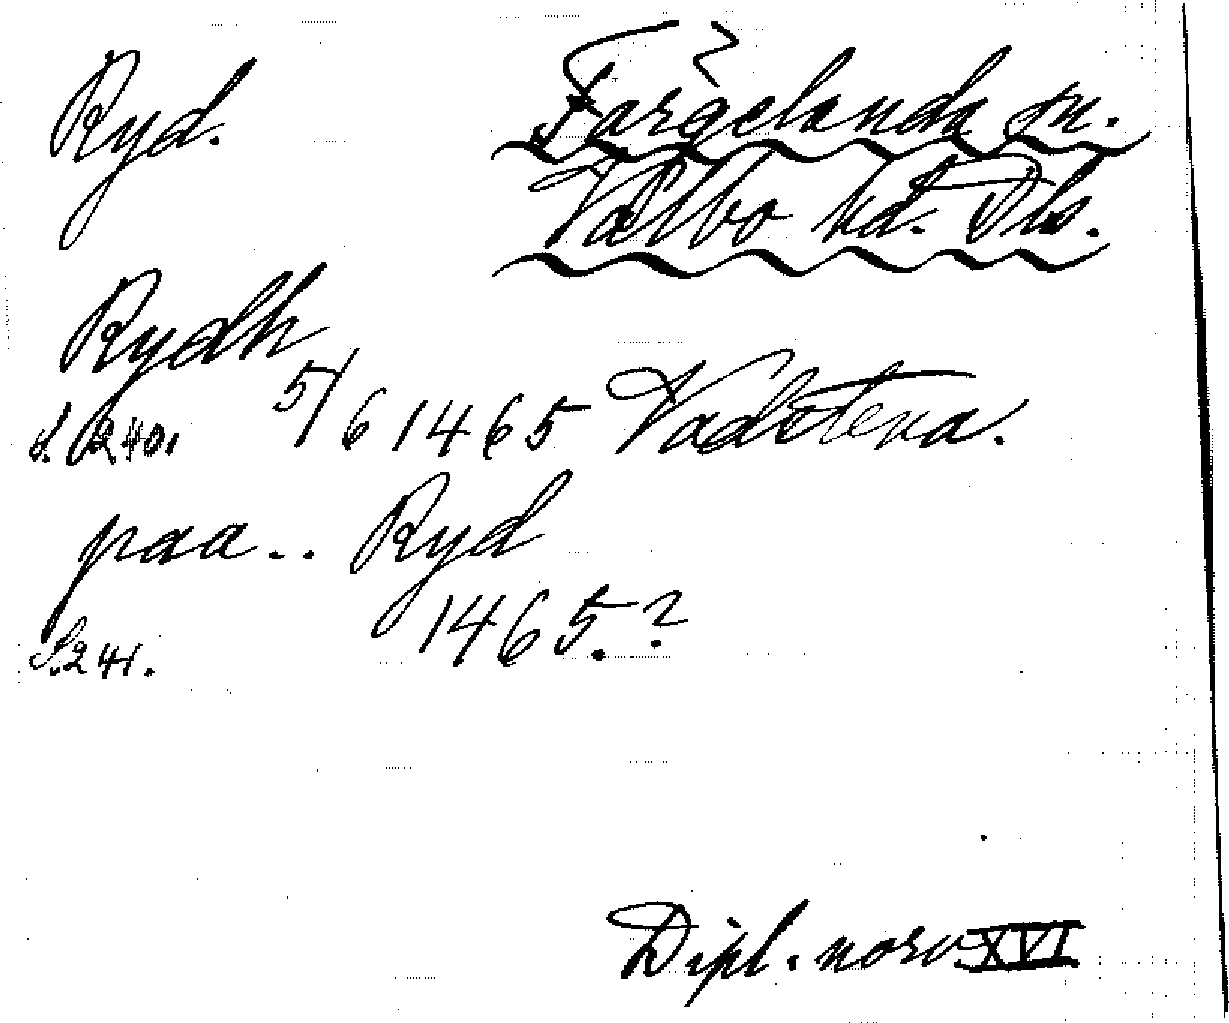 Ryd. Färgelanda sn.
Valbo hd. Dls.
Rydh
s. 240. 5/6 1465 Vadstena.
paa .. Ryd
S. 241. 1465.?
Dipl. norv. XVI